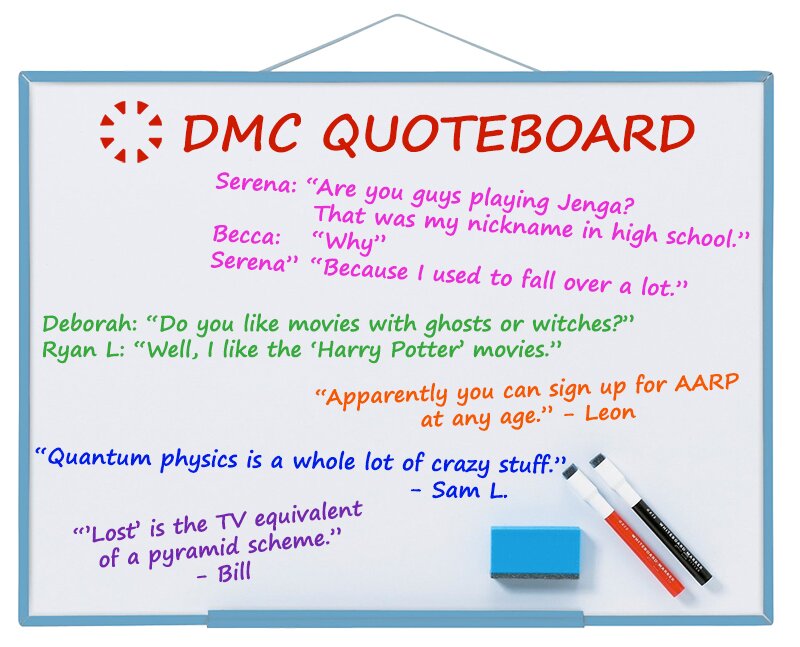 DMC QUOTEBOARD
Serena: “Are you guys playing Jenga?
That was my nickname in high school.”
Becca: “Why”
Serena” “Because I used to fall over a lot.”
Deborah: “Do you like movies with ghosts or witches?”
Ryan L: “Well, I like the ‘Harry Potter’ movies.”
“Apparently you can sign up for AARP
at any age.” - Leon
“Quantum physics is a whole lot of crazy stuff.”
- Sam L.
“’Lost’ is the TV equivalent
of a pyramid scheme.”
- Bill
WHITEBOARD MARKER
WHITEBOARD MARKER